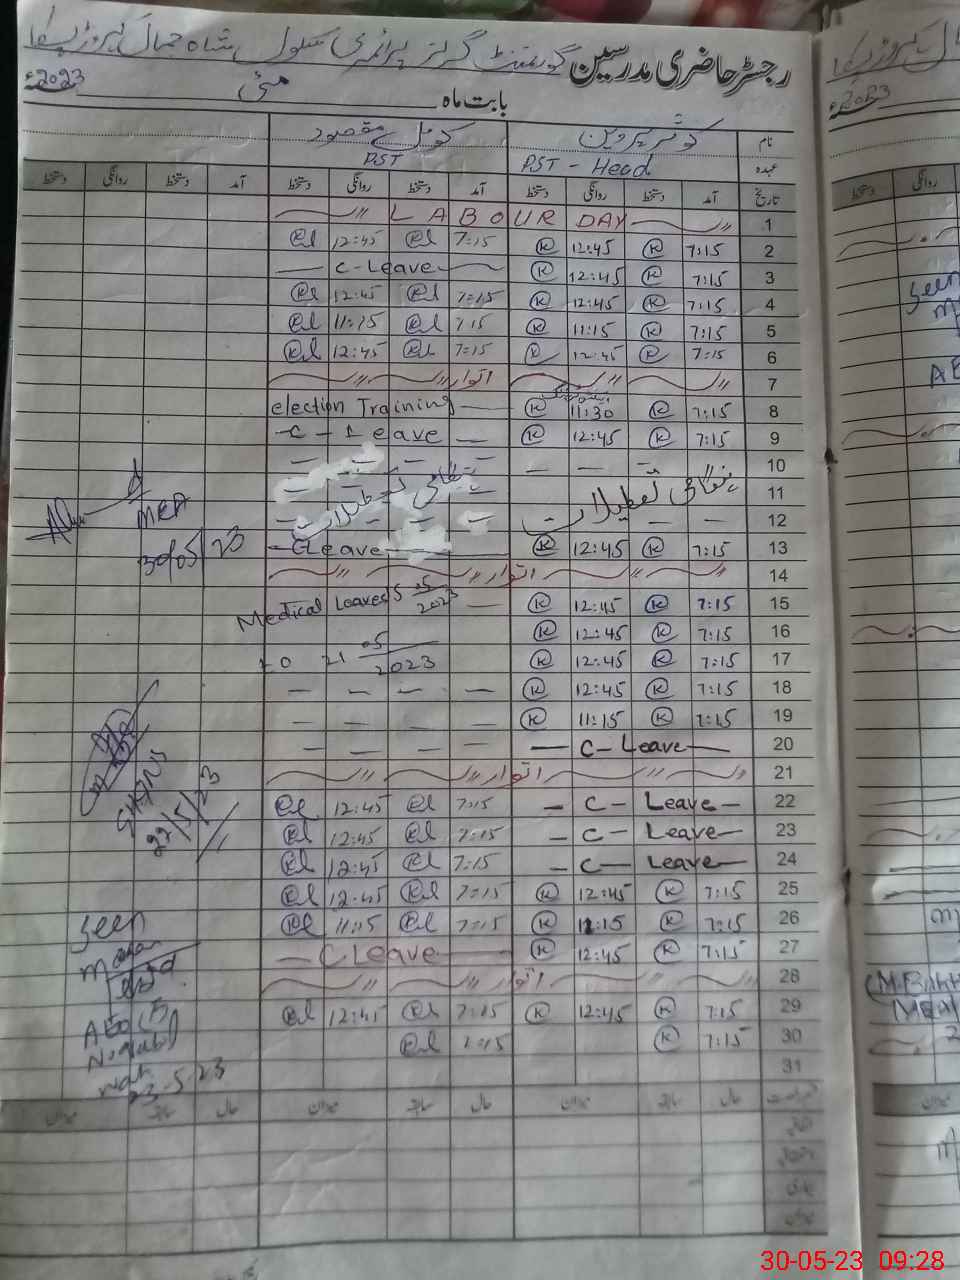 رجسٹر حاضری مدرسین گورنمنٹ گرلز پرائمری سکول شاہ جمال
بابت ماہ مئی 2023ء
نام کوثر پروین کومل مقصود
عہدہ PST - Head PST
تاریخ آمد دستخط روانگی دستخط آمد دستخط روانگی دستخط آمد دستخط روانگی دستخط
LABOUR DAY 1
el 12:45 el 7:15 K 12:45 K 7:15 2
C-Leave K 12:45 K 7:15 3
el 12:45 el 7:15 K 12:45 K 7:15 4
el 11:15 el 7:15 K 11:15 K 7:15 5
el 12:45 el 7:15 K 12:45 K 7:15 6
اتوار 7
election Training K 11:30 K 7:15 8
C - Leave K 12:45 K 7:15 9
10
ہنگامی تعطیلات ہنگامی تعطیلات 11
12
C Leave K 12:45 K 7:15 13
اتوار 14
Medical Leaves 15 05/2023 K 12:45 K 7:15 15
K 12:45 K 7:15 16
To 21 05/2023 K 12:45 K 7:15 17
K 12:45 K 7:15 18
K 11:15 K 7:15 19
C- Leave 20
اتوار 21
el 12:45 el 7:15 C- Leave 22
el 12:45 el 7:15 C- Leave 23
el 12:45 el 7:15 C- Leave 24
el 12:45 el 7:15 K 12:45 K 7:15 25
el 11:15 el 7:15 K 12:15 K 7:15 26
C Leave K 12:45 K 7:15 27
اتوار 28
el 12:45 el 7:15 K 12:45 K 7:15 29
el 7:15 K 7:15 30
31
حال سابقہ میزان حال سابقہ میزان حال سابقہ میزان
اتفاقیہ
میزان
MEA
30/05/23
22/5/23
Seen
AEO
23-5-23
2023ء
Seen
30-05-23 09:28